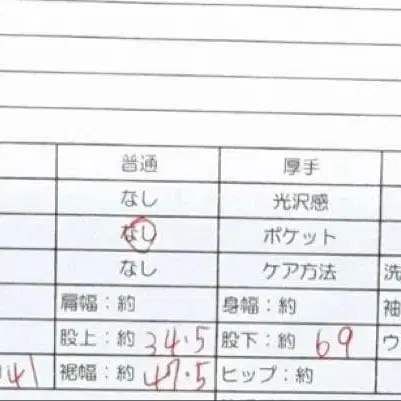 普通 厚手
なし 光沢感
なし ポケット
なし ケア方法 洗
肩幅：約 身幅：約 袖
股上：約 34.5 股下：約 69 ウ
41 裾幅：約 47.5 ヒップ：約